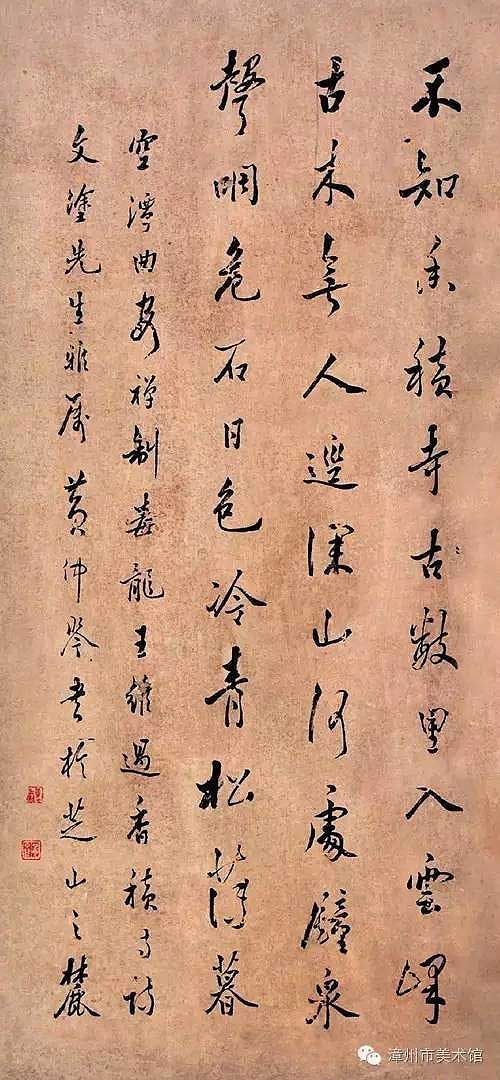 不知香積寺古數里入雲峰
古木無人逕深山何處鐘泉
聲咽危石日色冷青松薄暮
空潭曲安禪制毒龍王維過香積寺詩
文塗先生雅屬黃仲琴書於芝山之麓
漳州市美术馆